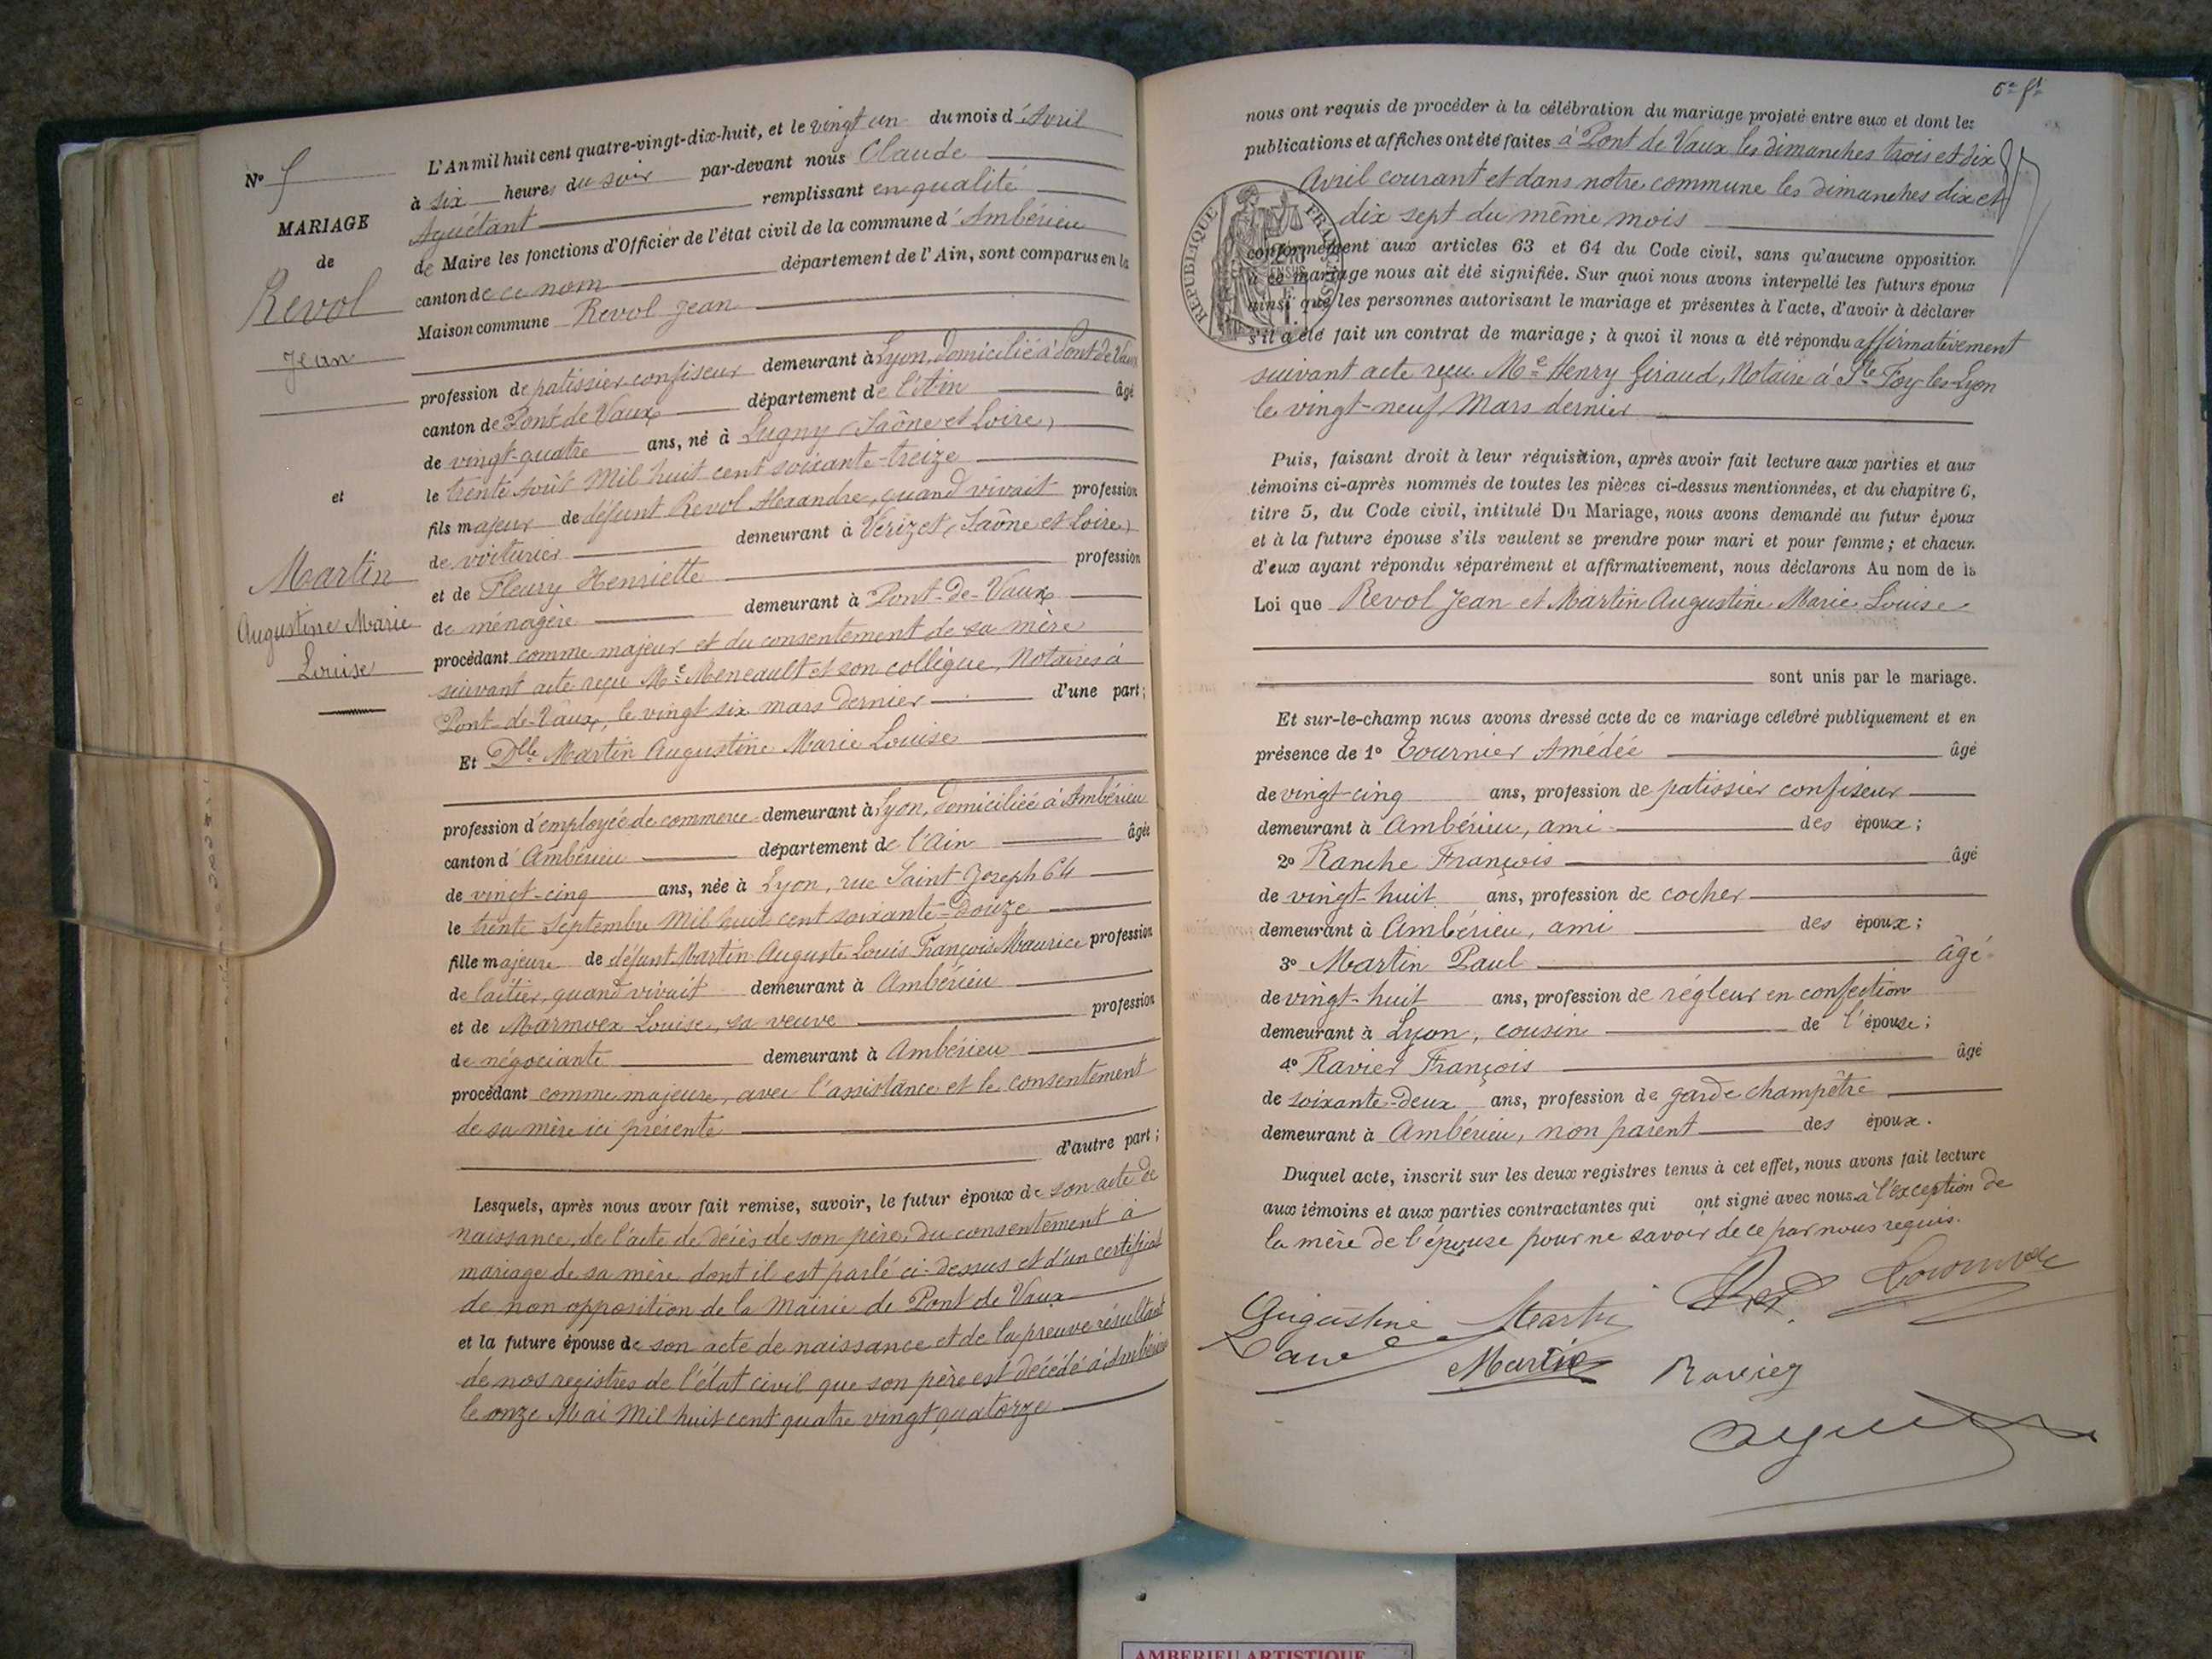 N° 5
MARIAGE
de
Revol
Jean
et
Martin
Augustine Marie
Louise
L'An mil huit cent quatre-vingt-dix-huit, et le vingt un du mois d'Avril
à six heures du soir par-devant nous Claude
Aguétant remplissant en qualité
de Maire les fonctions d'Officier de l'état civil de la commune d'Ambérieu
canton de ce nom département de l'Ain, sont comparus en la
Maison commune Revol Jean
profession de patissier confiseur demeurant à Lyon, domicilié à Pont de Vaux
canton de Pont de Vaux département de l'Ain âgé
de vingt-quatre ans, né à Lugny (Saône et Loire)
le trente Août Mil huit cent soixante-treize
fils majeur de défunt Revol Alexandre, quand vivait profession
de voiturier demeurant à Vérizet (Saône et Loire)
et de Fleury Henriette profession
de ménagère demeurant à Pont-de-Vaux
procédant comme majeur et du consentement de sa mère
suivant acte reçu Me Meneault et son collègue, Notaires à
Pont-de-Vaux, le vingt six mars dernier d'une part;
Et Dlle Martin Augustine Marie Louise
profession d'employée de commerce demeurant à Lyon, domiciliée à Ambérieu
canton d'Ambérieu département de l'Ain âgée
de vingt-cinq ans, née à Lyon, rue Saint Joseph 64
le trente Septembre Mil huit cent soixante-douze
fille majeure de défunt Martin Auguste Louis François Maurice profession
de laitier, quand vivait demeurant à Ambérieu
et de Marmoex Louise, sa veuve profession
de négociante demeurant à Ambérieu
procédant comme majeure, avec l'assistance et le consentement
de sa mère ici présente
d'autre part;
Lesquels, après nous avoir fait remise, savoir, le futur époux de son acte de
naissance, de l'acte de décès de son père, du consentement à
mariage de sa mère dont il est parlé ci-dessus et d'un certificat
de non opposition de la Mairie de Pont de Vaux
et la future épouse de son acte de naissance et de la preuve résultant
de nos registres de l'état civil que son père est décédé à Ambérieu
le onze Mai Mil huit cent quatre vingt quatorze
nous ont requis de procéder à la célébration du mariage projeté entre eux et dont les
publications et affiches ont été faites à Pont de Vaux les dimanches trois et dix
Avril courant et dans notre commune les dimanches dix et
dix sept du même mois
RÉPUBLIQUE FRANÇAISE
conformément aux articles 63 et 64 du Code civil, sans qu'aucune opposition
à ce mariage nous ait été signifiée. Sur quoi nous avons interpellé les futurs époux
ainsi que les personnes autorisant le mariage et présentes à l'acte, d'avoir à déclarer
s'il a été fait un contrat de mariage; à quoi il nous a été répondu affirmativement
suivant acte reçu Me Henry Giraud, Notaire à Ste Foy-les-Lyon
le vingt-neuf Mars dernier
Puis, faisant droit à leur réquisition, après avoir fait lecture aux parties et aux
témoins ci-après nommés de toutes les pièces ci-dessus mentionnées, et du chapitre 6,
titre 5, du Code civil, intitulé Du Mariage, nous avons demandé au futur époux
et à la future épouse s'ils veulent se prendre pour mari et pour femme; et chacun
d'eux ayant répondu séparément et affirmativement, nous déclarons Au nom de la
Loi que Revol Jean et Martin Augustine Marie Louise
sont unis par le mariage.
Et sur-le-champ nous avons dressé acte de ce mariage célébré publiquement et en
présence de 1° Tournier Amédée âgé
de vingt-cinq ans, profession de patissier confiseur
demeurant à Ambérieu, ami des époux;
2° Ranche François âgé
de vingt-huit ans, profession de cocher
demeurant à Ambérieu, ami des époux;
3° Martin Paul âgé
de vingt-huit ans, profession de régleur en confection
demeurant à Lyon, cousin de l'épouse;
4° Ravier François âgé
de soixante-deux ans, profession de garde champêtre
demeurant à Ambérieu, non parent des époux.
Duquel acte, inscrit sur les deux registres tenus à cet effet, nous avons fait lecture
aux témoins et aux parties contractantes qui ont signé avec nous à l'exception de
la mère de l'épouse pour ne savoir de ce par nous requis.
Augustine Martin
Martin Ravier
AMBERIEU ARTISTIQUE